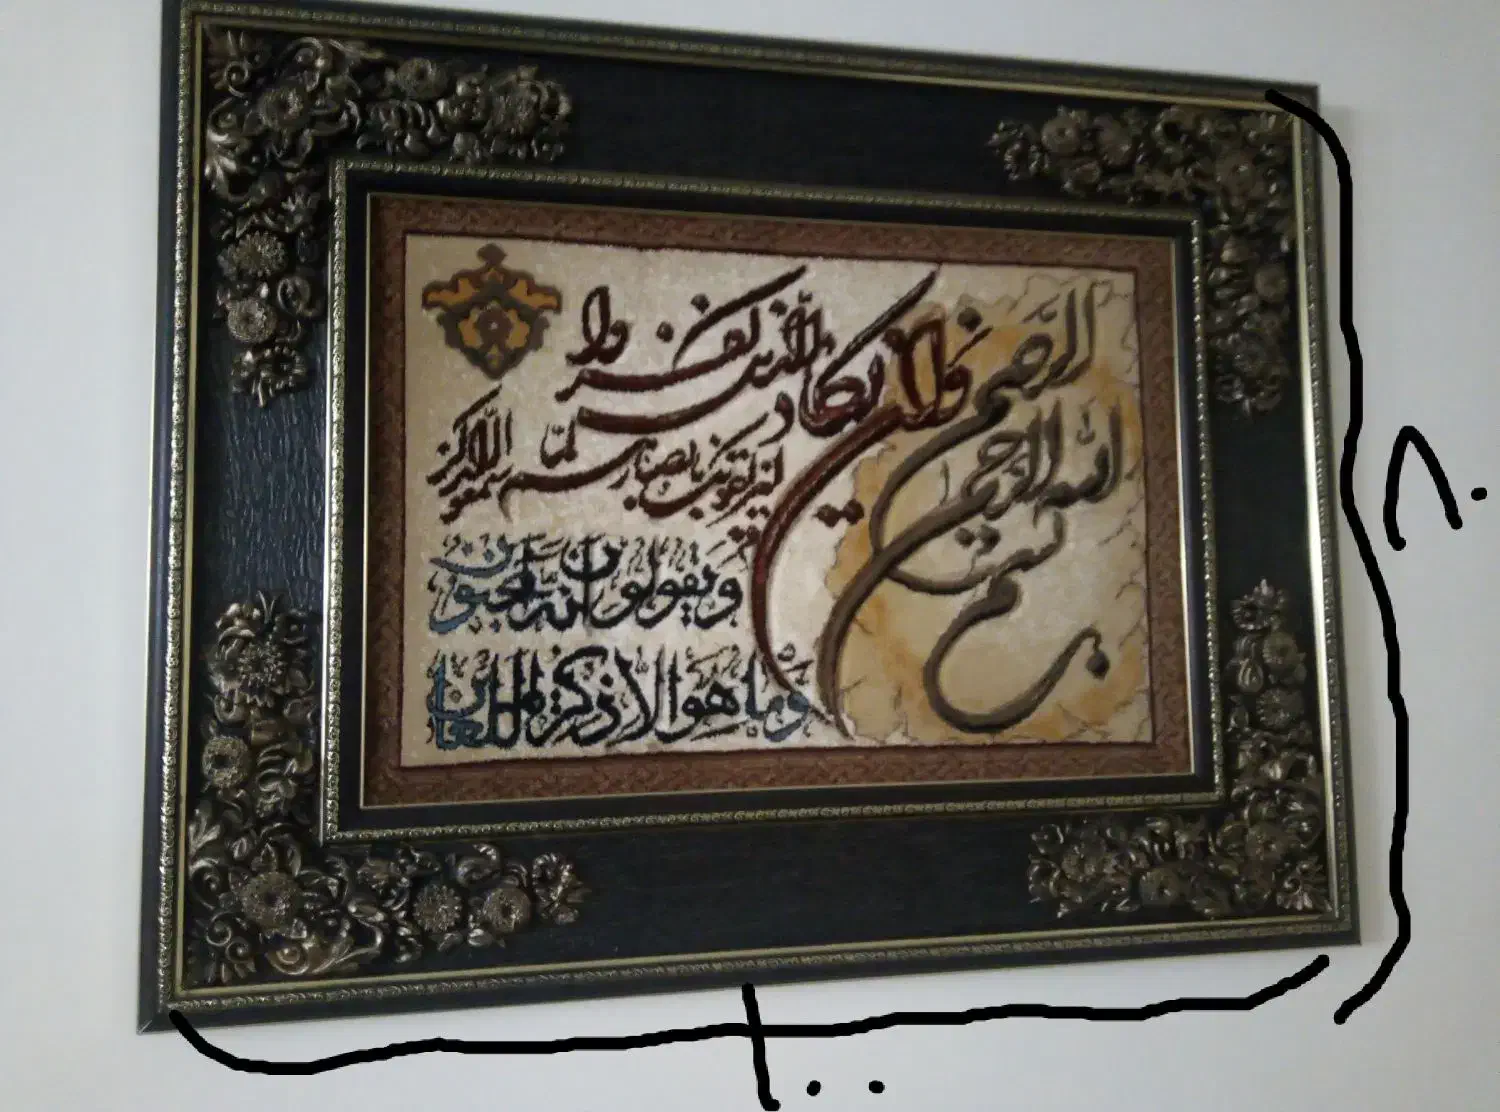 بسم الله الرحمن الرحیم
وان یکاد الذین کفروا
لیزلقونک بابصارهم لما سمعوا الذکر
ویقولون انه لمجنون
وما هو الا ذکر للعالمین
۸۰
۱۰۰